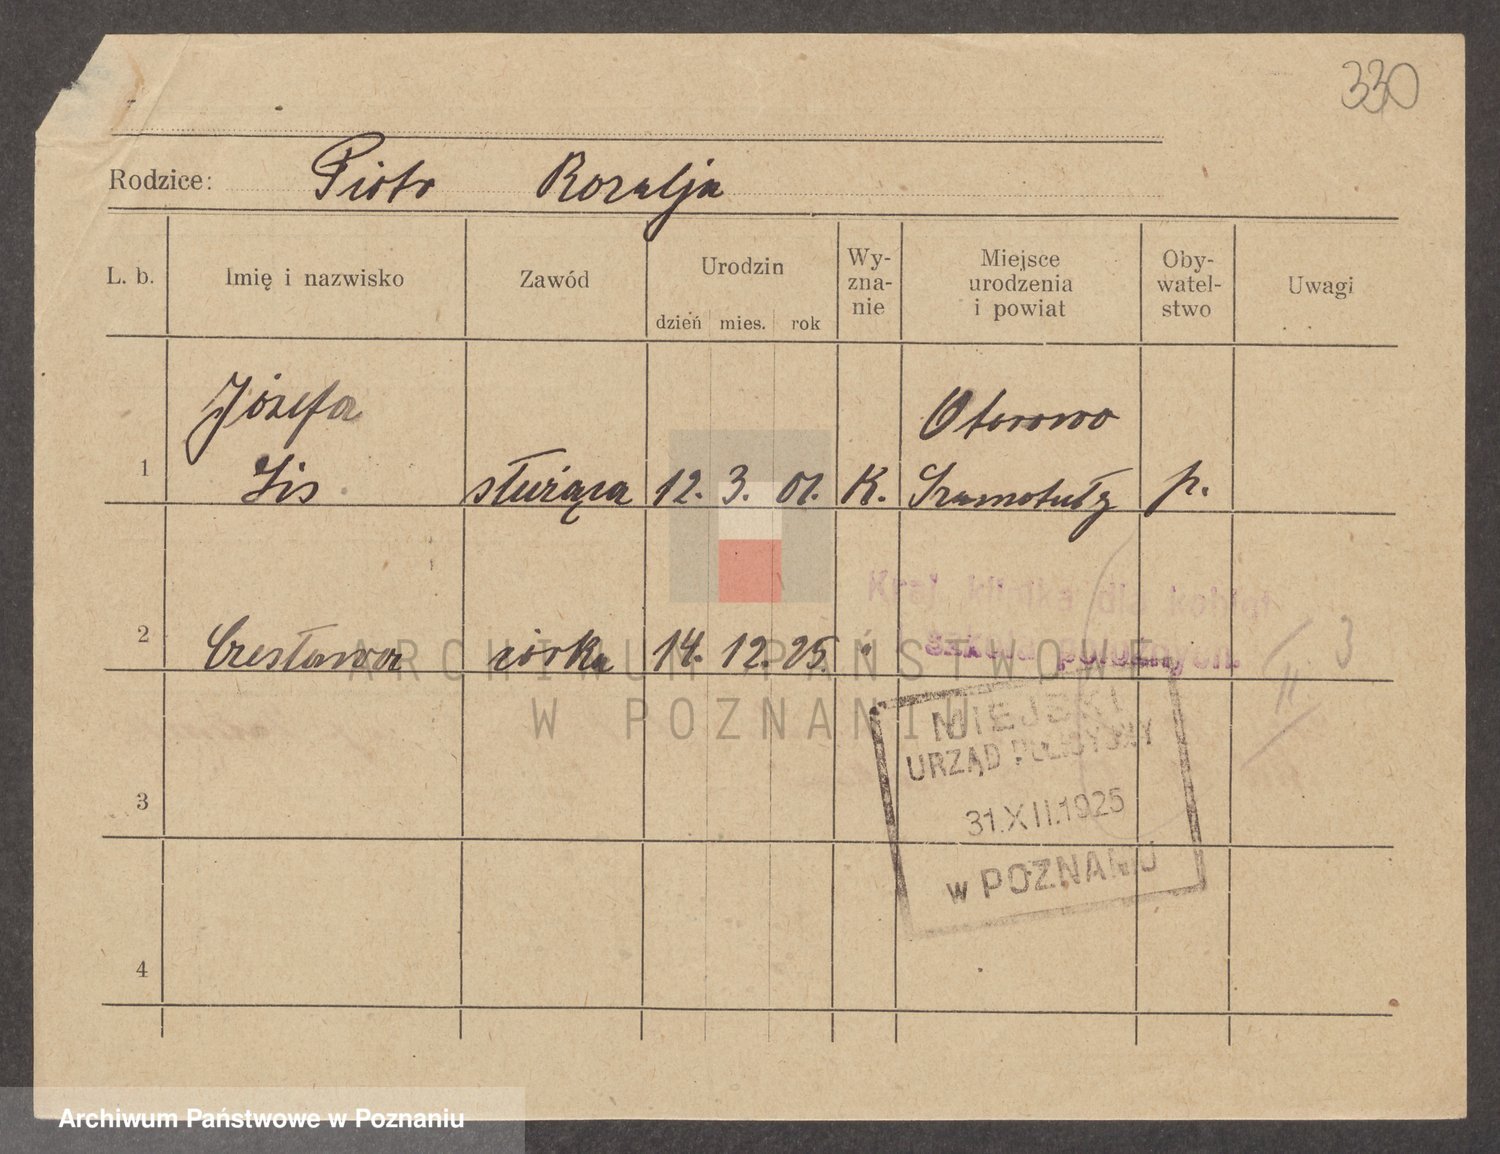 330
Rodzice: Piotr Rozalja
L. b. Imię i nazwisko Zawód Urodzin dzień mies. rok Wy-zna-nie Miejsce urodzenia i powiat Oby-watel-stwo Uwagi
Józefa Otorowo
1 Lis służąca 12. 3. 01. K. Szamotuły p.
Kraj. klinika dla kobiet
2 Czesława córka 14. 12. 25. " szkoła położnych. 3
II
ARCHIWUM PAŃSTWOWE
W POZNANIU
MIEJSKI
URZĄD POLICYJNY
3 31.XII.1925
w POZNANIU
4
Archiwum Państwowe w Poznaniu